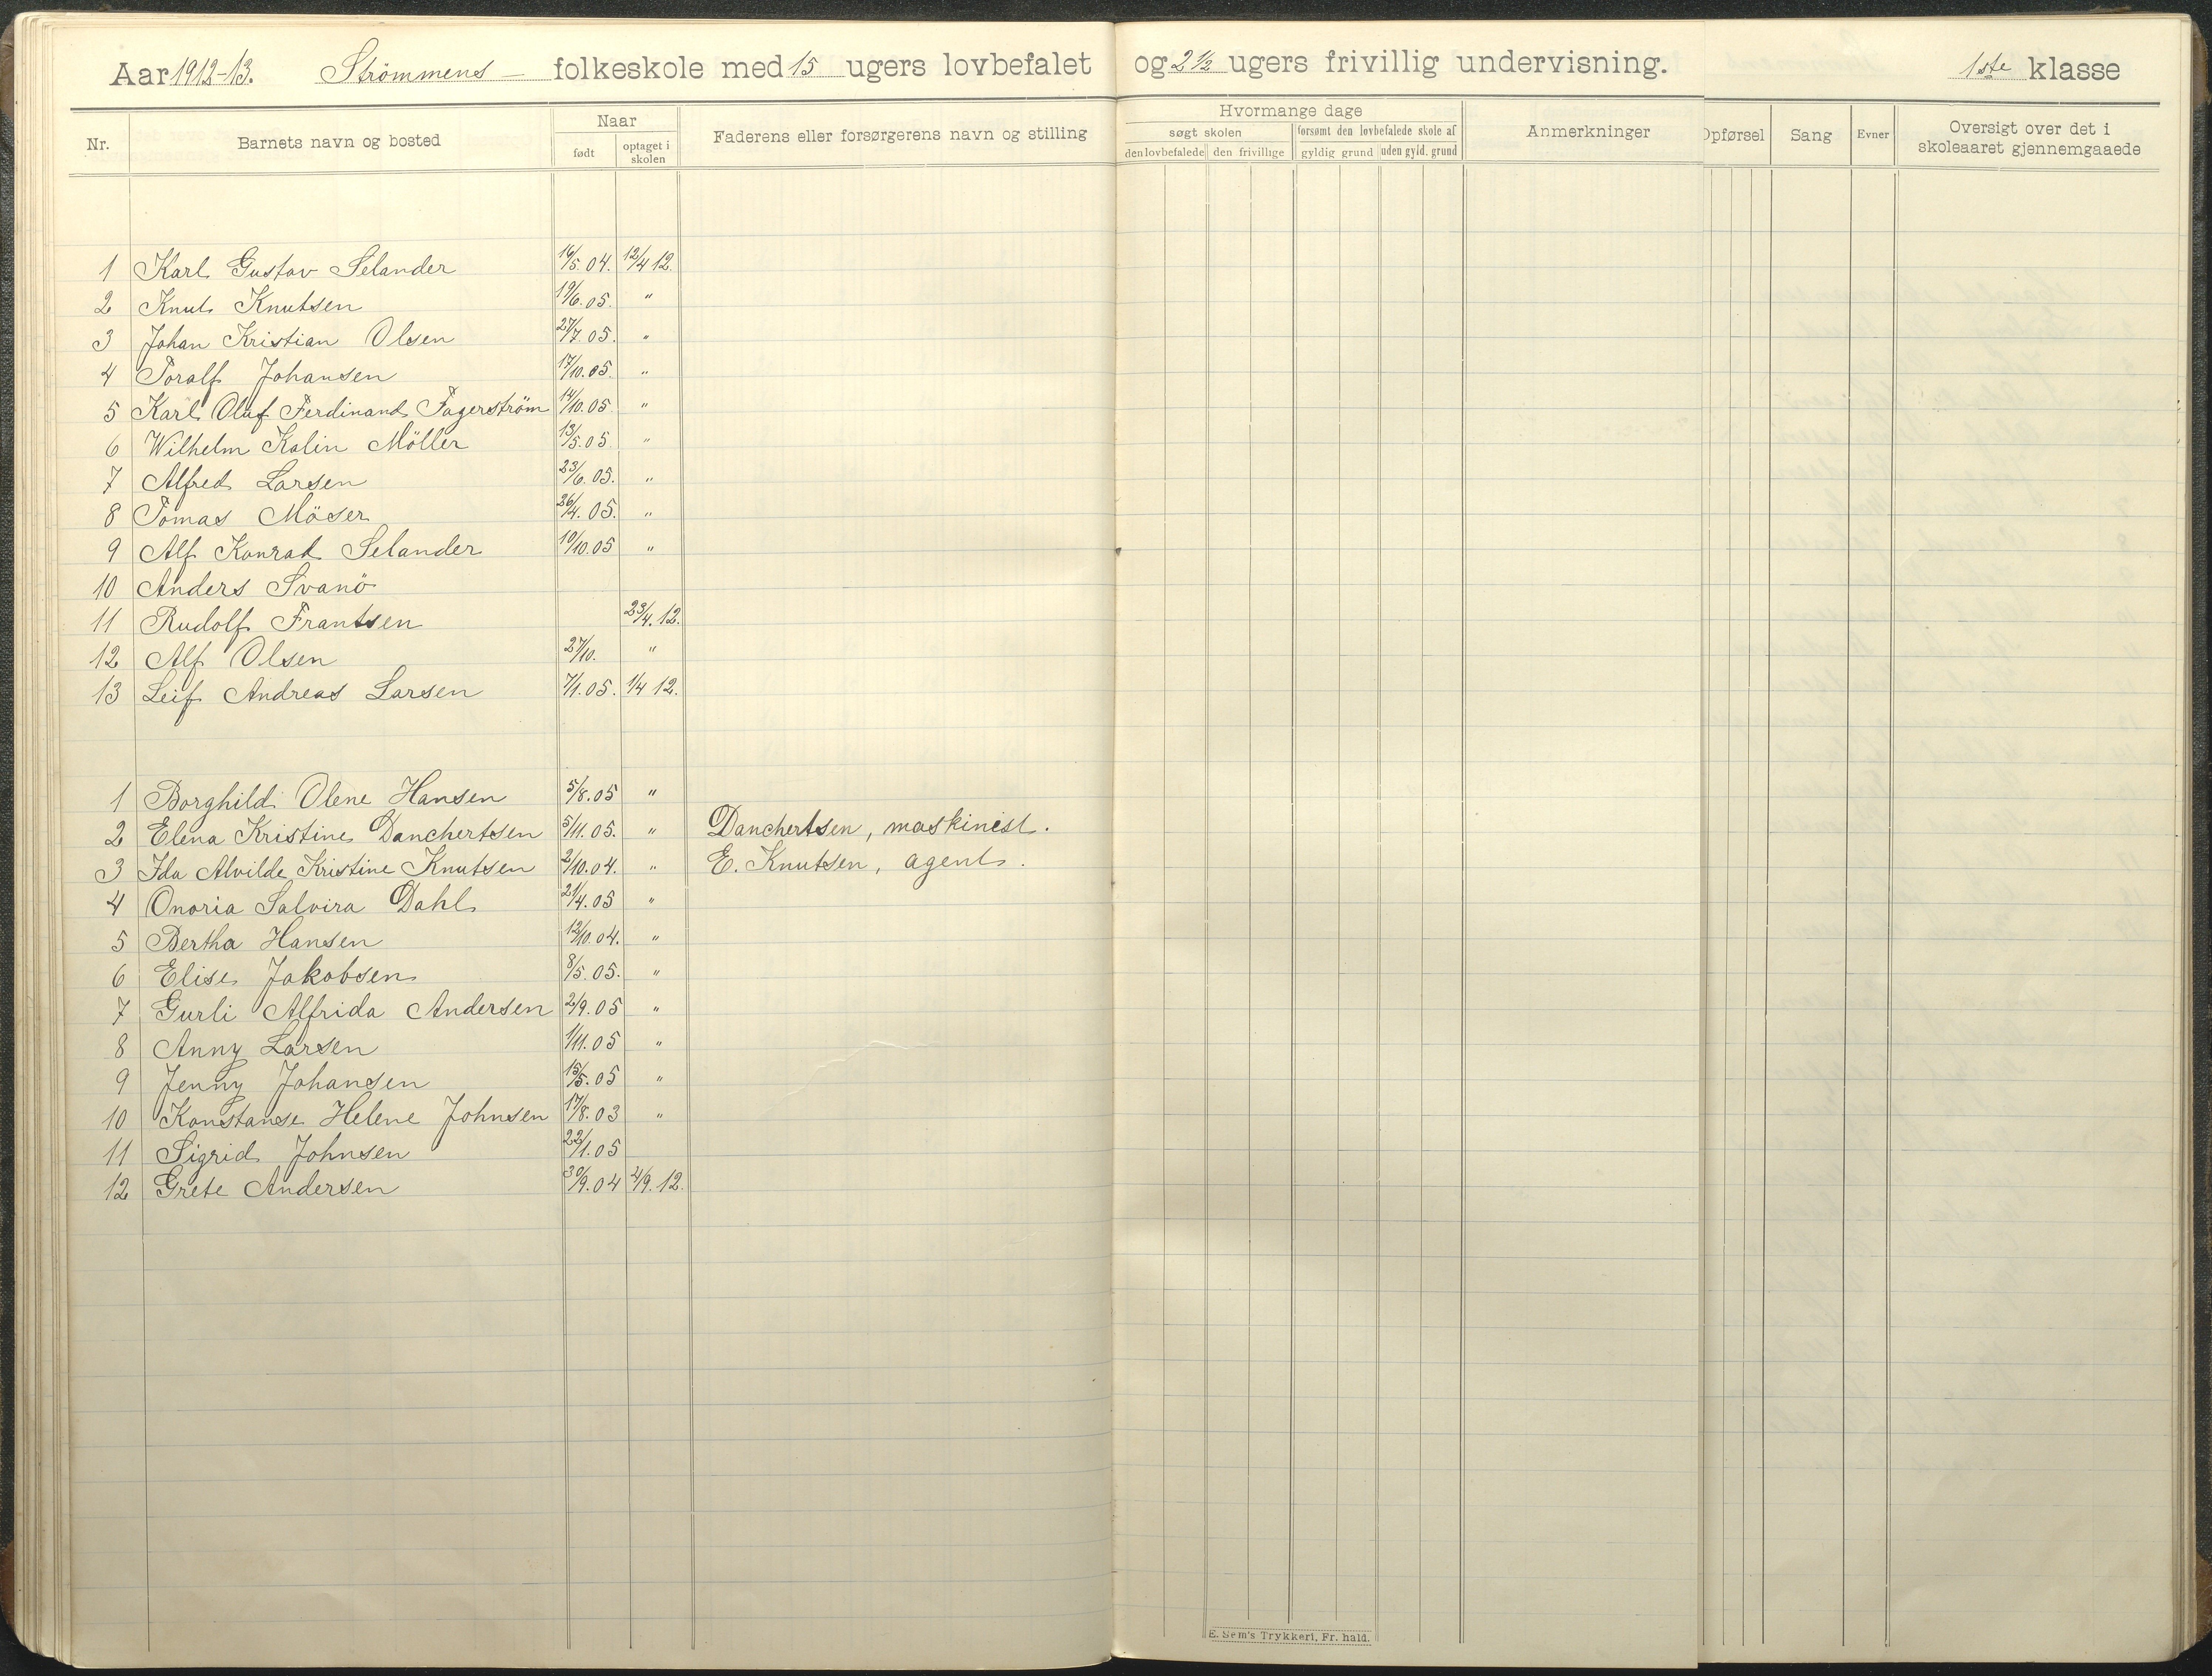 Aar 1912-13. Strömmens - folkeskole med 15 ugers lovbefalet og 2 ½ ugers frivillig undervisning. 1ste klasse
Nr. Barnets navn og bosted Naar født optaget i skolen Faderens eller forsørgerens navn og stilling Hvormange dage søgt skolen den lovbefalede den frivillige forsømt den løvbefalede skole af gyldig grund uden gyld. grund Anmerkninger Opførsel Sang Evner Oversigt over det i skoleaaret gjennemgaaede
1 Karl Gustav Selander 16/5.04. 12/4 12.
2 Knut Knutsen 19/6.05. "
3 Johan Kristian Olsen 27/7.05. "
4 Toralf Johansen 17/10.05. "
5 Karl Oluf Ferdinand Fagerström 14/10.05 "
6 Wilhelm Kalin Möller 13/5.05 "
7 Alfred Larsen 23/6.05. "
8 Tomas Möser 26/4.05. "
9 Alf Konrad Selander 10/10.05 "
10 Anders Svanö
11 Rudolf Frantsen 23/4.12.
12 Alf Olsen 27/10. "
13 Leif Andreas Larsen 7/1.05. 1/4 12.
1 Borghild Olene Hansen 5/8.05 "
2 Elena Kristine Danchertsen 5/11.05. " Danchertsen, maskinist.
3 Ida Alvilde Kristine Knutsen 2/10.04. " E. Knutsen, agent.
4 Onoria Salvira Dahl 21/4.05 "
5 Bertha Hansen 12/10.04. "
6 Elise Jakobsen 8/5.05. "
7 Gurli Alfrida Andersen 2/9.05 "
8 Anny Larsen 1/11.05 "
9 Jenny Johansen 15/5.05 "
10 Konstanse Helene Johnsen 17/8.03 "
11 Sigrid Johnsen 22/1.05
12 Grete Andersen 30/9.04 2/9.12.
E. Sem's Trykkeri, Fr. hald.